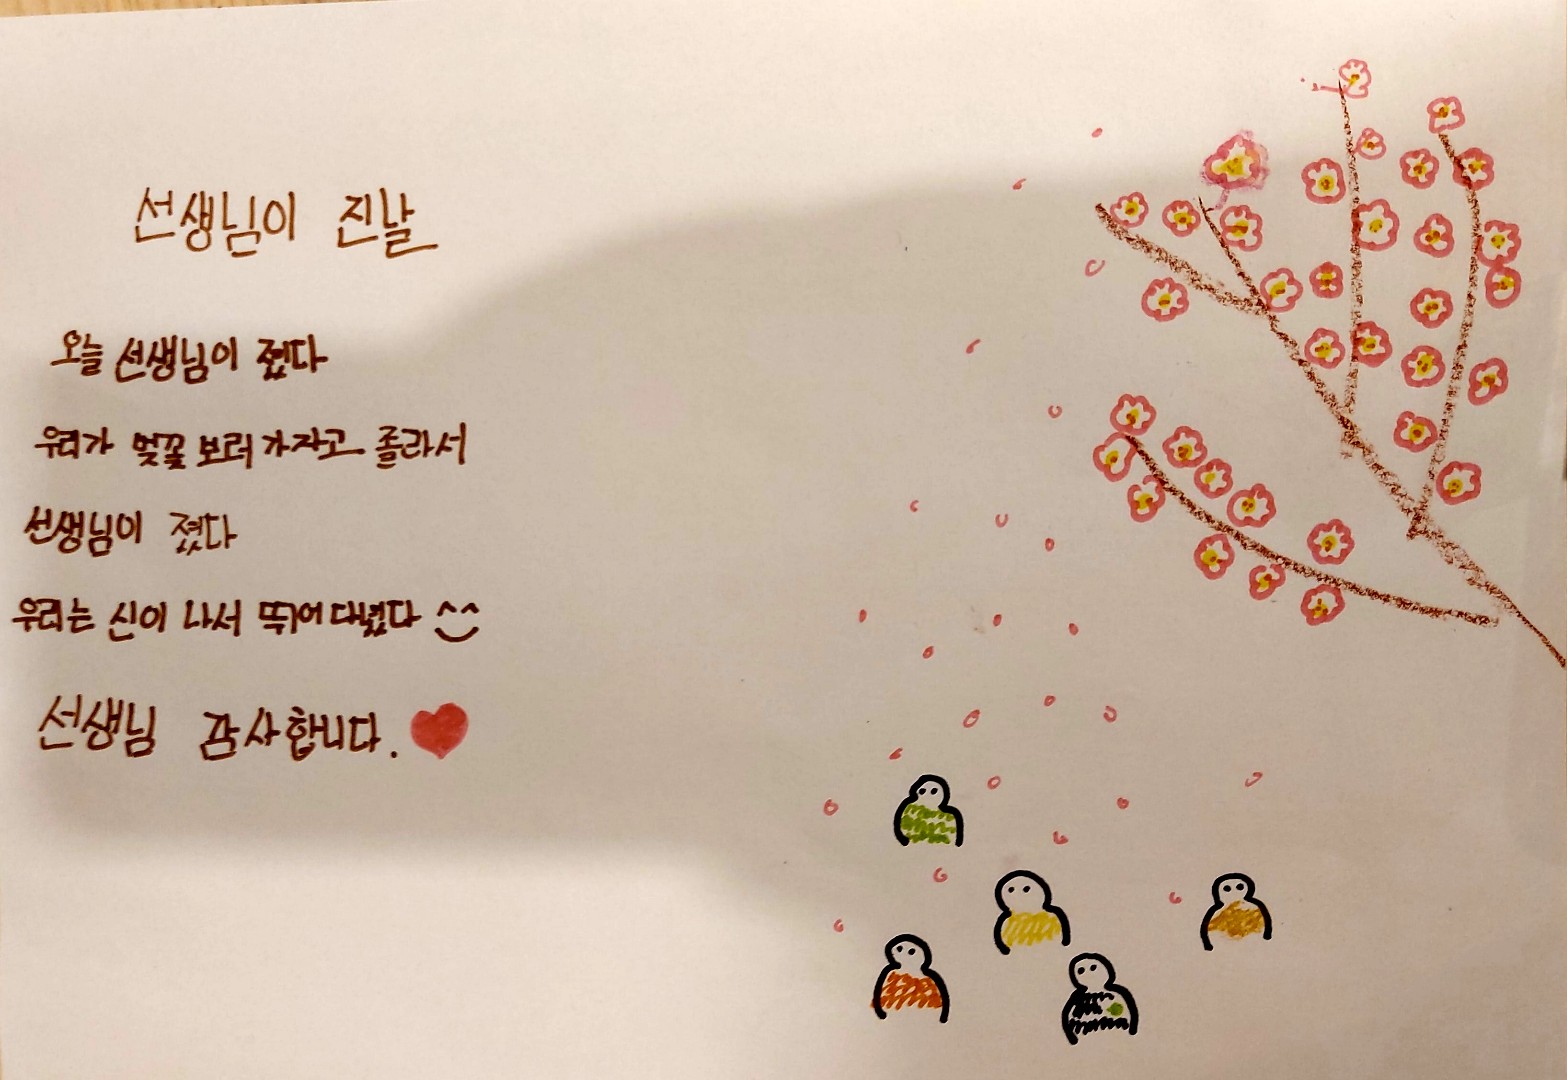 선생님이 진날
오늘 선생님이 졌다
우리가 벚꽃 보러 가자고 졸라서
선생님이 졌다
우리는 신이 나서 뛰어 다녔다 ^^
선생님 감사합니다.